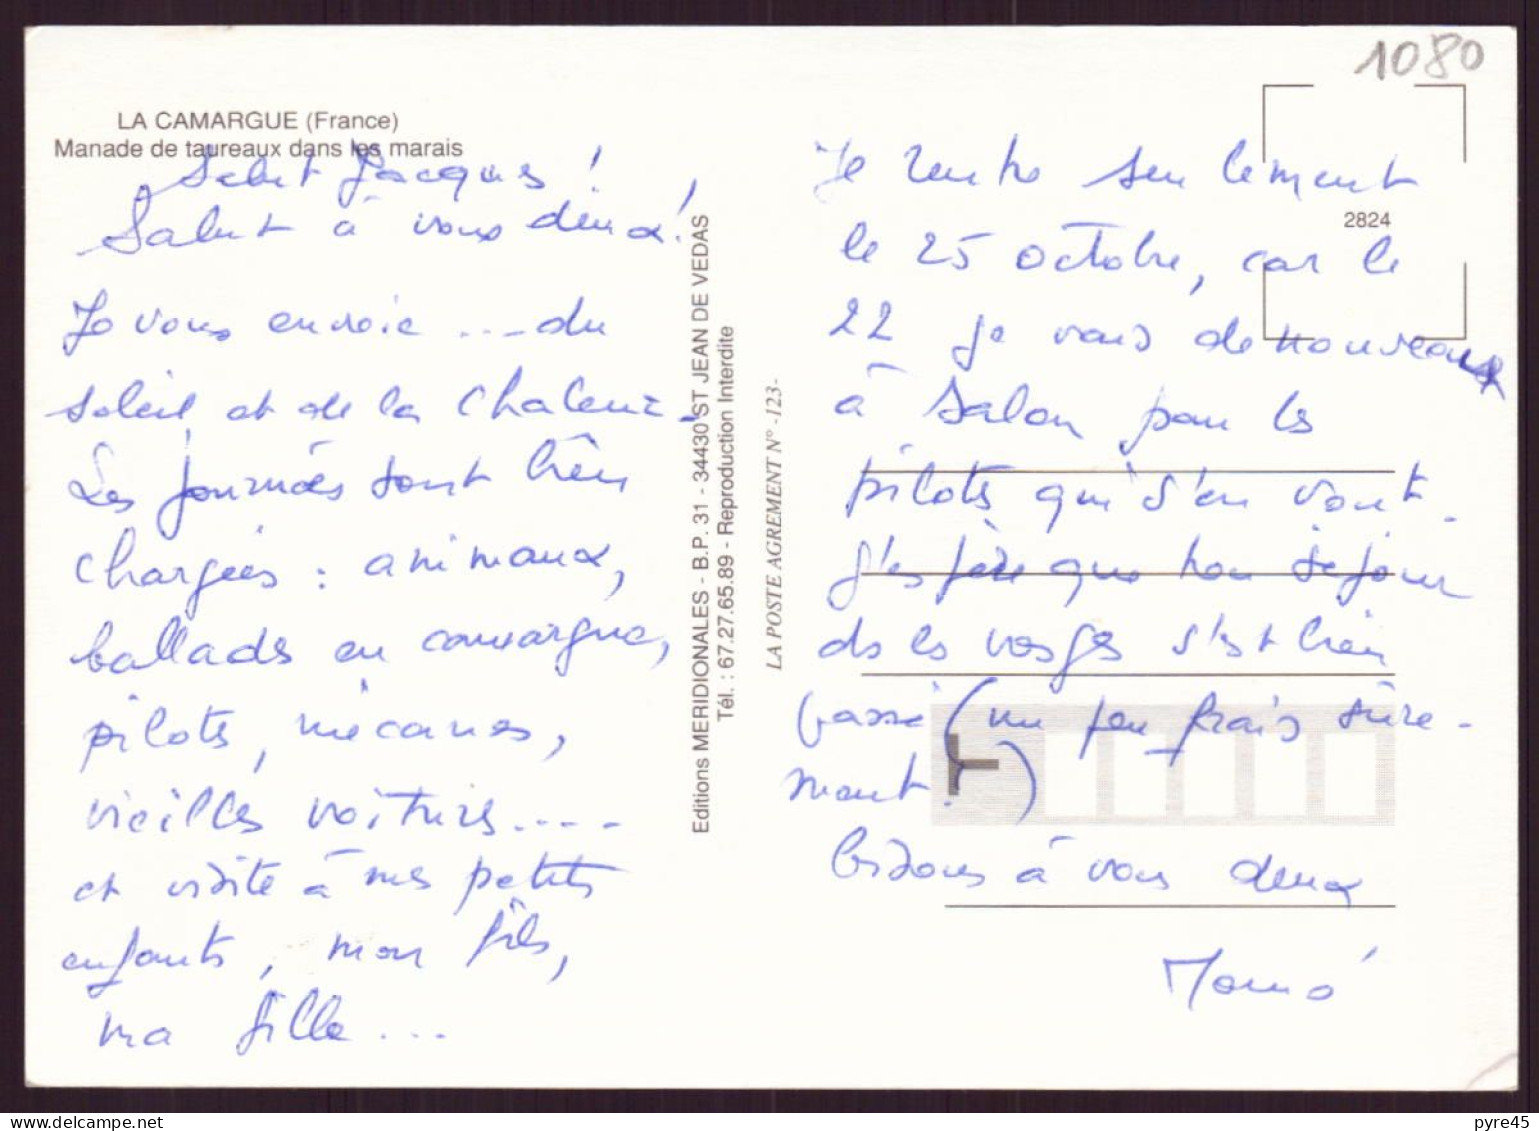 1080
LA CAMARGUE (France)
Manade de taureaux dans les marais
Salut Jacques !
Salut à vous deux !
Je vous envoie ... du
soleil et de la chaleur.
Les journées sont bien
chargées : animaux,
ballads en camargue,
pilots, mécanos,
vieilles voitures....
et visite à mes petits
enfants, mon fils,
ma fille...
Editions MERIDIONALES - B.P. 31 - 34430 ST JEAN DE VEDAS
Tél. : 67.27.65.89 - Reproduction Interdite
LA POSTE AGREMENT N° -123-
2824
Je rentre seulement
le 25 octobre, car le
22 je vais de nouveau
à Salon pour les
pilots qui s'en vont.
J'espère que ton séjour
ds les vosges s'est bien
passé (un peu frais sûre-
ment.)
bisous à vous deux
pyre45